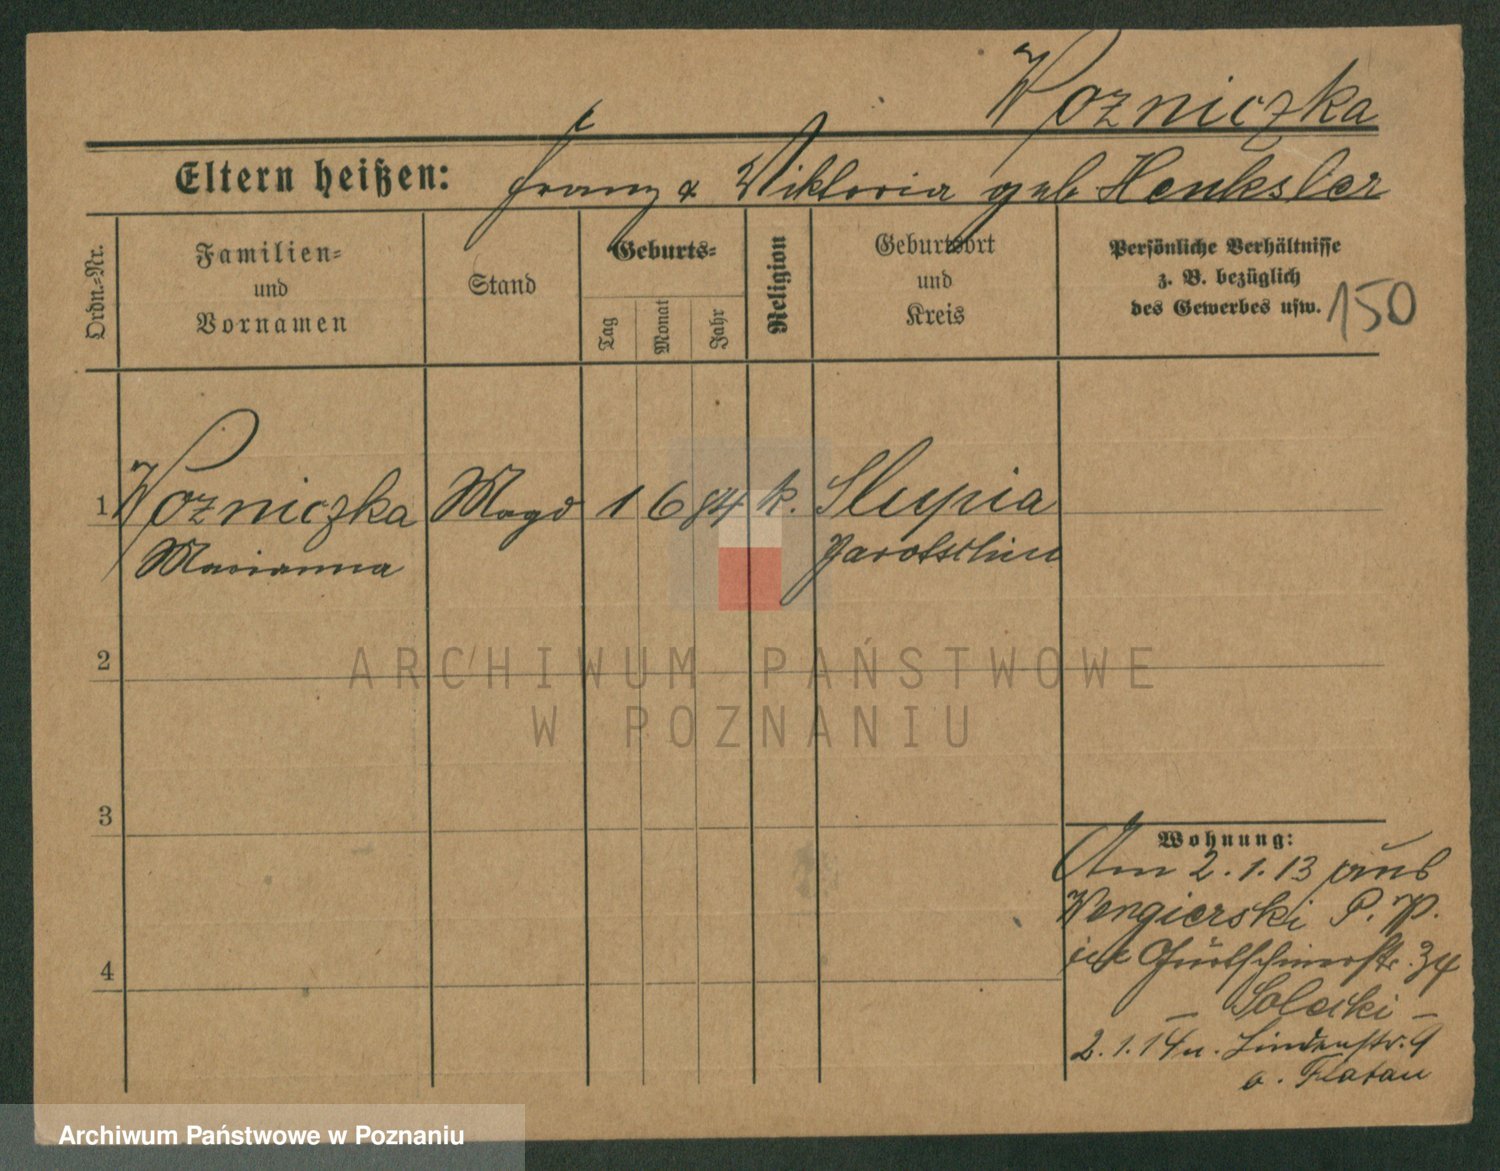 Wozniczka
Eltern heißen: Franz & Viktoria geb Henksler
Ordn.=Nr.
Familien=
und
Vornamen
Stand
Geburts=
Tag
Monat
Jahr
Religion
Geburtsort
und
Kreis
Persönliche Verhältnisse
z. B. bezüglich
des Gewerbes usw.
150
1 Wozniczka Magd 1 6 84 k. Slupia
Marianna Jarotschin
2
ARCHIWUM PAŃSTWOWE
W POZNANIU
3
Wohnung:
Am 2.1.13 aus
Wengierski P. P.
in Gurtschinerstr. 34
– Solecki –
2.1.14 n. Lindenstr. 9
b. Flatau
4
Archiwum Państwowe w Poznaniu